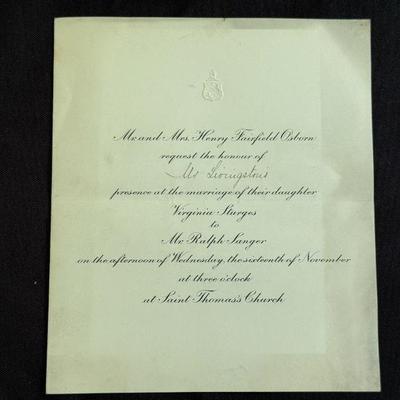 Mr. and Mrs. Henry Fairfield Osborn
request the honour of
Mr Livingston's
presence at the marriage of their daughter
Virginia Sturges
to
Mr. Ralph Sanger
on the afternoon of Wednesday, the sixteenth of November
at three o'clock
at Saint Thomas's Church